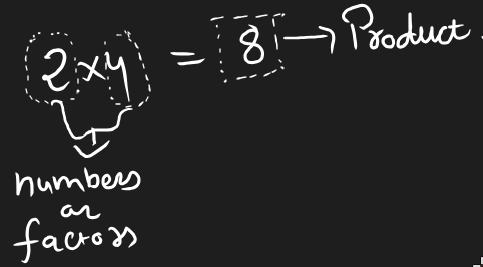 2 × 4 = 8 → Product
numbers
or
factors